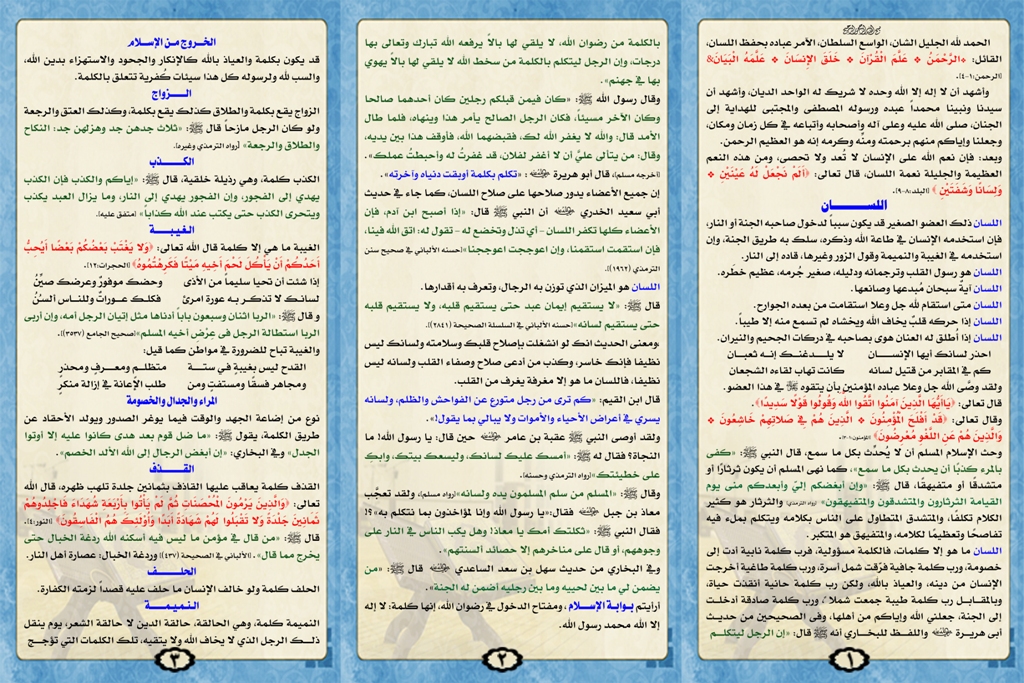 الحمد لله الجليل الشان، الواسع السلطان، الآمر عباده بحفظ اللسان،
القائل: ﴿الرَّحْمَنُ * عَلَّمَ الْقُرْآنَ * خَلَقَ الْإِنسَانَ * عَلَّمَهُ الْبَيَانَ﴾
(الرحمن:١-٤).
وأشهد أن لا إله إلا الله وحده لا شريك له الواحد الديان، وأشهد أن
سيدنا ونبينا محمداً عبده ورسوله المصطفى والمجتبى للهداية إلى
الجنان، صلى الله عليه وعلى آله وأصحابه وأتباعه في كل زمان ومكان،
وجعلنا وإياكم منهم برحمته ومنِّه وكرمه إنه هو العظيم الرحمن.
وبعد: فإن نعم الله على الإنسان لا تعد ولا تحصى، ومن هذه النعم
العظيمة والجليلة نعمة اللسان، قال تعالى: ﴿أَلَمْ نَجْعَل لَّهُ عَيْنَيْنِ *
وَلِسَانًا وَشَفَتَيْنِ﴾ (البلد:٨-٩).
اللسان
اللسان ذلك العضو الصغير قد يكون سبباً لدخول صاحبه الجنة أو النار،
فإن استخدمه الإنسان في طاعة الله وذكره، سلك به طريق الجنة، وإن
استخدمه في الغيبة والنميمة وقول الزور وغيرها، قاده إلى النار.
اللسان هو رسول القلب وترجمانه ودليله، صغير جُرمه، عظيم خطره.
اللسان آيةُ سبحان مُبدعها وصانعها.
اللسان متى استقام لله جل وعلا استقامت من بعده الجوارح.
اللسان إذا حركه قلبٌ يخاف الله ويخشاه لم تسمع منه إلا طيباً.
اللسان إذا أطلق له العنان هوى بصاحبه في دركات الجحيم والنيران.
احذر لسانك أيها الإنسان لا يلدغنك إنه ثعبان
كم في المقابر من قتيل لسانه كانت تهاب لقاءه الشجعان
ولقد وصَّى الله جل وعلا عباده المؤمنين بأن يتقوه في هذا العضو.
قال تعالى: ﴿يَا أَيُّهَا الَّذِينَ آمَنُوا اتَّقُوا اللَّهَ وَقُولُوا قَوْلًا سَدِيدًا﴾.
وقال تعالى: ﴿قَدْ أَفْلَحَ الْمُؤْمِنُونَ * الَّذِينَ هُمْ فِي صَلَاتِهِمْ خَاشِعُونَ *
وَالَّذِينَ هُمْ عَنِ اللَّغْوِ مُعْرِضُونَ﴾ (المؤمنون:١-٣).
وحث الإسلام المسلم أن لا يُحدِّث بكل ما سمع، قال النبي ﷺ: «كفى
بالمرء كذبًا أن يحدث بكل ما سمع»، كما نهى المسلم أن يكون ثرثارًا أو
متشدقًا أو متفيهقًا، قال ﷺ: «وإن أبغضكم إليَّ وأبعدكم مني يوم
القيامة الثرثارون والمتشدقون والمتفيهقون» (رواه الترمذي)، والثرثار هو كثير
الكلام تكلفًا، والمتشدق المتطاول على الناس بكلامه ويتكلم بملء فيه
تفاصحًا وتعظيمًا لكلامه، والمتفيهق هو المتكبر.
اللسان ما هو إلا كلمات، فالكلمة مسؤولية، فرب كلمة نابية أدت إلى
خصومة، ورب كلمة جافية فرَّقت شمل أسرة، ورب كلمة طاغية أخرجت
الإنسان من دينه، والعياذ بالله، ولكن رب كلمة حانية أنقذت حياة،
وبالمقابل رب كلمة طيبة جمعت شملا، ورب كلمة صادقة أدخلت
إلى الجنة، جعلني الله وإياكم من أهلها، وفي الصحيحين من حديث
أبي هريرة ﵁ واللفظ للبخاري أنه ﷺ قال: «إن الرجل ليتكلم
١
بالكلمة من رضوان الله، لا يلقي لها بالاً يرفعه الله تبارك وتعالى بها
درجات، وإن الرجل ليتكلم بالكلمة من سخط الله لا يلقي لها بالاً يهوي
بها في جهنم».
وقال رسول الله ﷺ: «كان فيمن قبلكم رجلين كان أحدهما صالحا
وكان الآخر مسيئاً، فكان الرجل الصالح يأمر هذا وينهاه، فلما طال
الأمد قال: والله لا يغفر الله لك، فقبضهما الله، فأوقف هذا بين يديه،
وقال: من يتألى عليَّ أن لا أغفر لفلان، قد غفرتُ له وأحبطتُ عملك».
(أخرجه مسلم). قال أبو هريرة ﵁: «تكلم بكلمة أوبقت دنياه وآخرته».
إن جميع الأعضاء يدور صلاحها على صلاح اللسان، كما جاء في حديث
أبي سعيد الخدري ﵁ أن النبي ﷺ قال: «إذا أصبح ابن آدم، فإن
الأعضاء كلها تكفر اللسان – أي تذل وتخضع له – تقول له: اتق الله فينا،
فإن استقمت استقمنا، وإن اعوججت اعوججنا» (حسنه الألباني في صحيح سنن
الترمذي (١٩٦٢)).
اللسان هو الميزان الذي توزن به الرجال، وتعرف به أقدارها.
قال ﷺ: «لا يستقيم إيمان عبد حتى يستقيم قلبه، ولا يستقيم قلبه
حتى يستقيم لسانه» (حسنه الألباني في السلسلة الصحيحة (٢٨٤١)).
ومعنى الحديث انك لو انشغلت بإصلاح قلبك وسلامته ولسانك ليس
نظيفا فإنك خاسر، وكذب من ادعى صلاح وصفاء القلب ولسانه ليس
نظيفا، فاللسان ما هو إلا مغرفة يغرف من القلب.
قال ابن القيم: «كم ترى من رجل متورع عن الفواحش والظلم، ولسانه
يسري في أعراض الأحياء والأموات ولا يبالي بما يقول!».
ولقد أوصى النبي ﷺ عقبة بن عامر ﵁ حين قال: يا رسول الله! ما
النجاة؟ فقال له ﷺ: «أمسك عليك لسانك، وليسعك بيتك، وابكِ
على خطيئتك» (رواه الترمذي وحسنه).
وقال ﷺ: «المسلم من سلم المسلمون يده ولسانه» (رواه مسلم)، ولقد تعجَّب
معاذ بن جبل ﵁ فقال: «يا رسول الله وإنا لمؤاخذون بما نتكلم به؟!
فقال النبي ﷺ: «ثكلتك أمك يا معاذ! وهل يكب الناس في النار على
وجوههم، أو قال على مناخرهم إلا حصائد ألسنتهم».
وفي البخاري من حديث سهل بن سعد الساعدي ﵁ قال ﷺ: «من
يضمن لي ما بين لحييه وما بين رجليه أضمن له الجنة».
أرأيتم بوابة الإسلام، ومفتاح الدخول في رضوان الله، إنها كلمة: لا إله
إلا الله محمد رسول الله.
٢
الخروج من الإسلام
قد يكون بكلمة والعياذ بالله كالإنكار والجحود والاستهزاء بدين الله،
والسب لله ولرسوله كل هذا سيئات كُفرية تتعلق بالكلمة.
الزواج
الزواج يقع بكلمة والطلاق كذلك يقع بكلمة، وكذلك العتق والرجعة
ولو كان الرجل مازحاً قال ﷺ: «ثلاث جدهن جد وهزلهن جد: النكاح
والطلاق والرجعة» (رواه الترمذي وغيره).
الكذب
الكذب كلمة، وهي رذيلة خلقية، قال ﷺ: «إياكم والكذب فإن الكذب
يهدي إلى الفجور، وإن الفجور يهدي إلى النار، وما يزال العبد يكذب
ويتحرى الكذب حتى يكتب عند الله كذاباً» (متفق عليه).
الغيبة
الغيبة ما هي إلا كلمة قال الله تعالى: ﴿وَلَا يَغْتَب بَّعْضُكُم بَعْضًا أَيُحِبُّ
أَحَدُكُمْ أَن يَأْكُلَ لَحْمَ أَخِيهِ مَيْتًا فَكَرِهْتُمُوهُ﴾ (الحجرات:١٢).
إذا شئت أن تحيا سليماً من الأذى وحضك موفورٌ وعرضك صيِّنُ
لسانك لا تذكر به عورة امرئ فكلك عوراتٌ وللناس ألسنُ
وقال ﷺ: «الربا اثنان وسبعون باباً أدناها مثل إتيان الرجل أمه، وإن أربى
الربا استطالة الرجل في عِرْض أخيه المسلم» (صحيح الجامع (٣٥٣٧)).
والغيبة تباح للضرورة في مواطن كما قيل:
القدح ليس بغيبةٍ في ستة متظلم ومعرفٍ ومحذرِ
ومجاهر فسقا ومستفتٍ ومن طلب الإعانة في إزالة منكرِ
المراء والجدال والخصومة
نوع من إضاعة الجهد والوقت فيما يوغر الصدور ويولد الأحقاد عن
طريق الكلمة، يقول ﷺ: «ما ضل قوم بعد هدى كانوا عليه إلا أوتوا
الجدل» وفي البخاري: «إن أبغض الرجال إلى الله الألد الخصم».
القذف
القذف كلمة يعاقب عليها القاذف بثمانين جلدة تلهب ظهره، قال الله
تعالى: ﴿وَالَّذِينَ يَرْمُونَ الْمُحْصَنَاتِ ثُمَّ لَمْ يَأْتُوا بِأَرْبَعَةِ شُهَدَاءَ فَاجْلِدُوهُمْ
ثَمَانِينَ جَلْدَةً وَلَا تَقْبَلُوا لَهُمْ شَهَادَةً أَبَدًا وَأُولَئِكَ هُمُ الْفَاسِقُونَ﴾ (النور:٤).
قال ﷺ: «من قال في مؤمن ما ليس فيه أسكنه الله ردغة الخبال حتى
يخرج مما قال». (الألباني في الصحيحة (٤٣٧)) وردغة الخبال: عصارة أهل النار.
الحلف
الحلف كلمة ولو خالف الإنسان ما حلف عليه قصداً لزمته الكفارة.
النميمة
النميمة كلمة، وهي الحالقة، حالقة الدين لا حالقة الشعر، يوم ينقل
ذلك الرجل الذي لا يخاف الله ولا يتقيه، تلك الكلمات التي تؤجج
٣